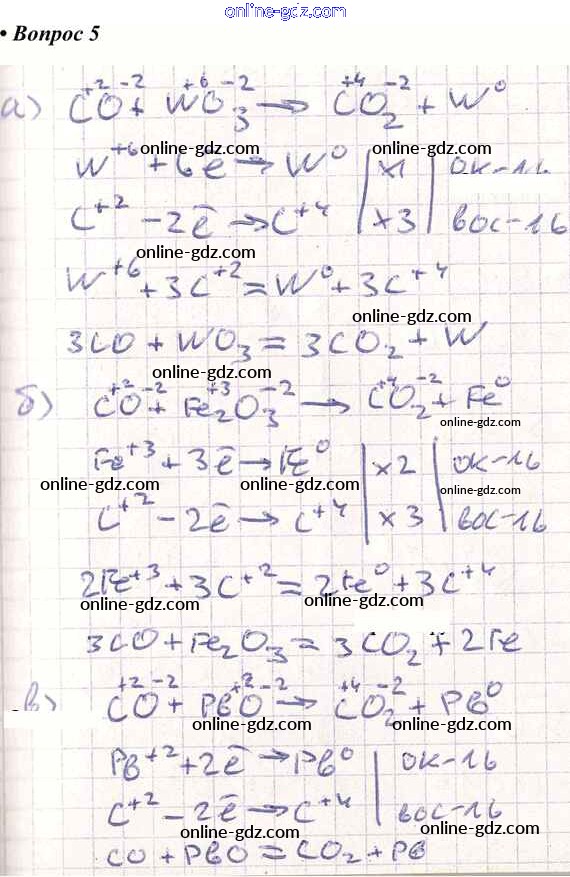 online-gdz.com
• Вопрос 5
а) C⁺²O⁻² + W⁺⁶O₃⁻² → C⁺⁴O₂⁻² + W⁰
online-gdz.com online-gdz.com
W⁺⁶ + 6e̅ → W⁰ | x1 | ок-ль
C⁺² - 2e̅ → C⁺⁴ | x3 | вос-ль
online-gdz.com
W⁺⁶ + 3C⁺² = W⁰ + 3C⁺⁴
online-gdz.com
3CO + WO₃ = 3CO₂ + W
online-gdz.com
б) C⁺²O⁻² + Fe₂⁺³O₃⁻² → C⁺⁴O₂⁻² + Fe⁰
online-gdz.com
Fe⁺³ + 3e̅ → Fe⁰ | x2 | ок-ль
online-gdz.com online-gdz.com online-gdz.com
C⁺² - 2e̅ → C⁺⁴ | x3 | вос-ль
2Fe⁺³ + 3C⁺² = 2Fe⁰ + 3C⁺⁴
online-gdz.com online-gdz.com
3CO + Fe₂O₃ = 3CO₂ + 2Fe
online-gdz.com
в) C⁺²O⁻² + Pb⁺²O⁻² → C⁺⁴O₂⁻² + Pb⁰
online-gdz.com online-gdz.com
Pb⁺² + 2e̅ → Pb⁰ | ок-ль
C⁺² - 2e̅ → C⁺⁴ | вос-ль
online-gdz.com online-gdz.com
CO + PbO = CO₂ + Pb